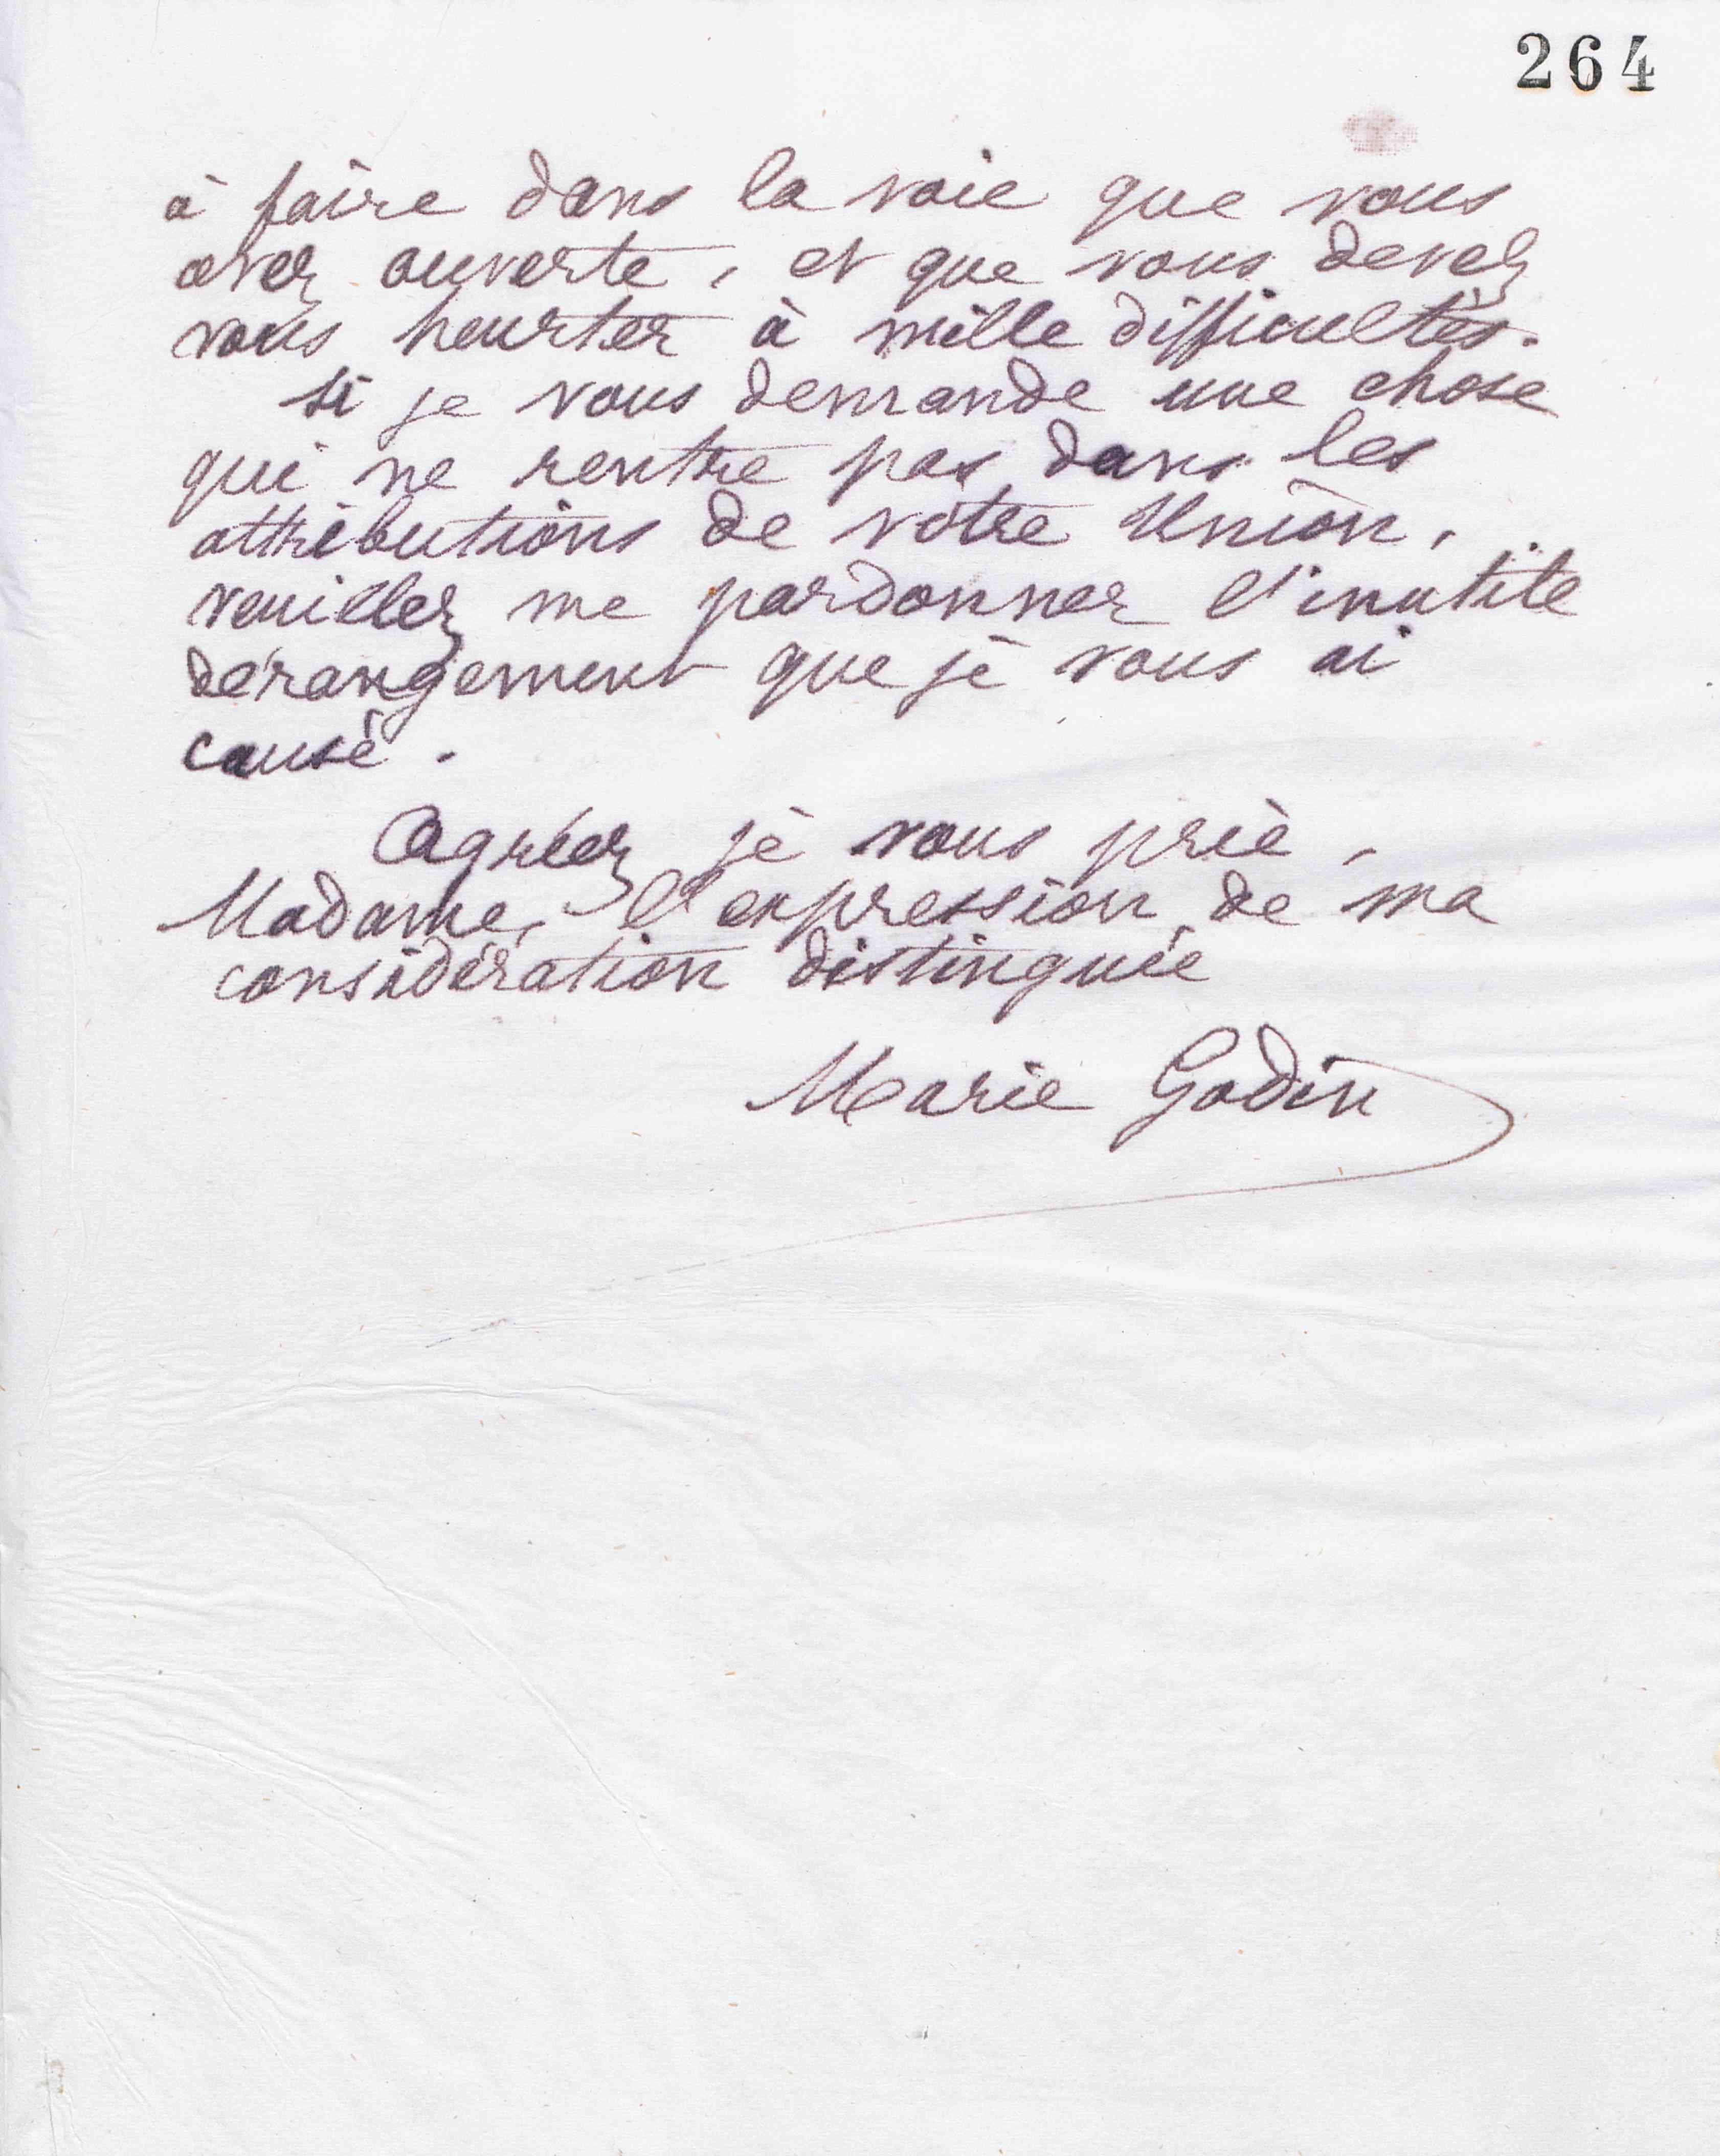 264
à faire dans la voie que vous
avez ouverte, et que vous devez
vous heurter à mille difficultés.
Si je vous demande une chose
qui ne rentre pas dans les
attributions de votre Union,
veuillez me pardonner l'inutile
dérangement que je vous ai
causé.
Agréez je vous prie,
Madame, l'expression de ma
considération distinguée
Marie Godin